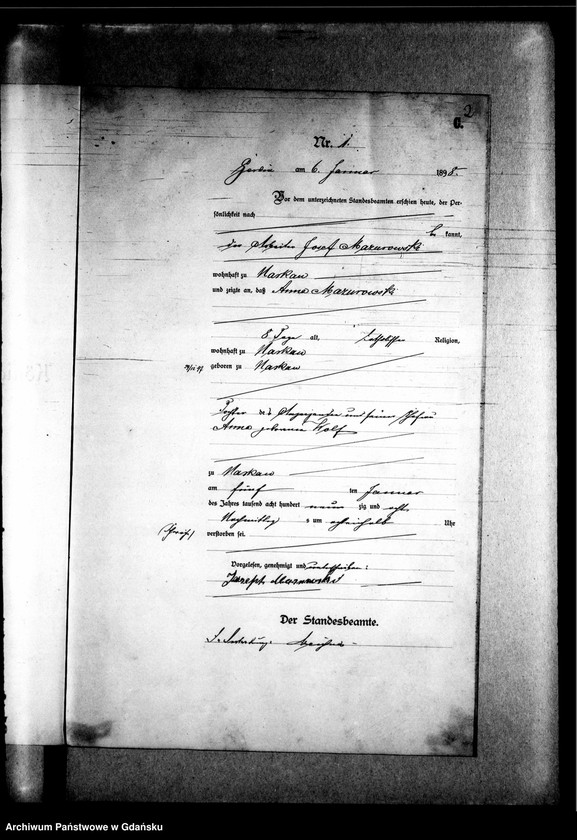 2
C.
Nr. 1.
am 6. Januar 1898.
Vor dem unterzeichneten Standesbeamten erschien heute, der Per-
sönlichkeit nach
be kannt,
der Arbeiter Josef Mazurowski
wohnhaft zu Maskau
und zeigte an, daß Anna Mazurowski
8 Tage alt, katholischer Religion,
wohnhaft zu Maskau
geboren zu Maskau
Tochter des Anzeigenden und seiner Ehefrau
Anna geborene Wolf
zu Maskau
am fünf ten Januar
des Jahres tausend acht hundert neun zig und acht
Nachmittag s um Uhr
verstorben sei.
Vorgelesen, genehmigt und unterschrieben:
Joseph Mazurowski
Der Standesbeamte.
Archiwum Państwowe w Gdańsku